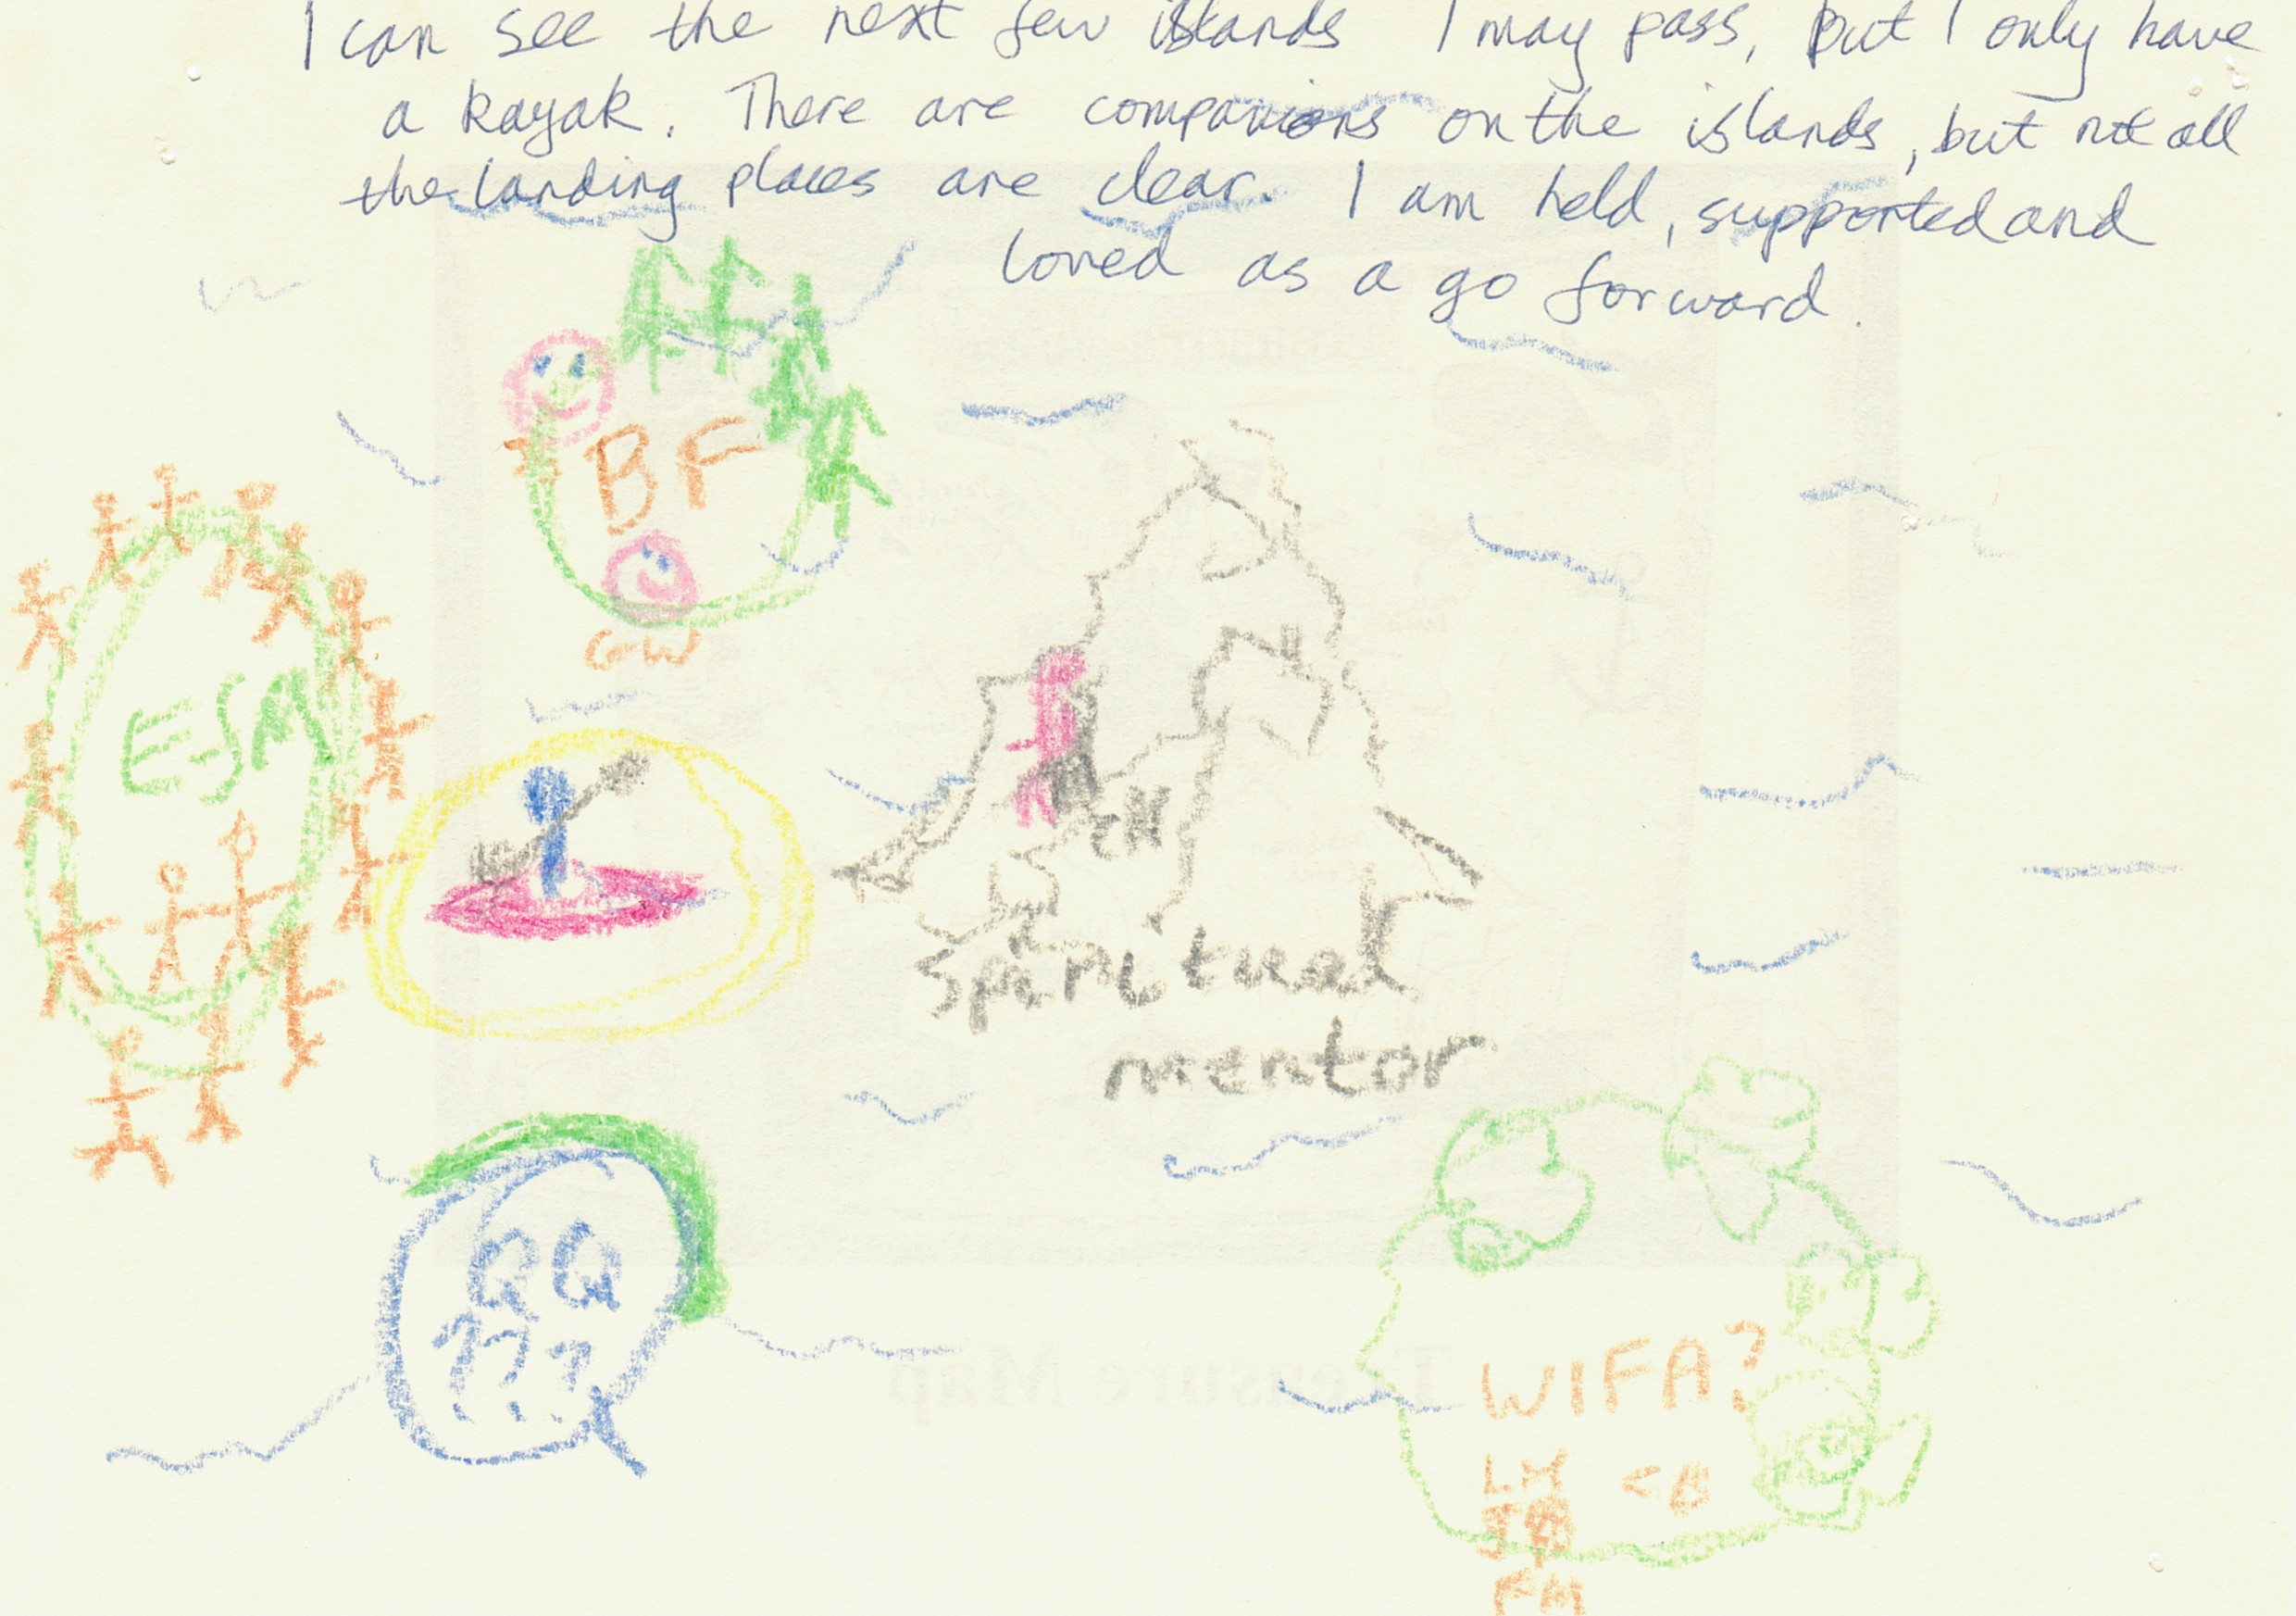 I can see the next few islands I may pass, but I only have
a kayak. There are companions on the islands, but not all
the landing places are clear. I am held, supported and
loved as a go forward.
BF
GW
ESM
CH
Spiritual
mentor
QQ
???
WIFA?
LH